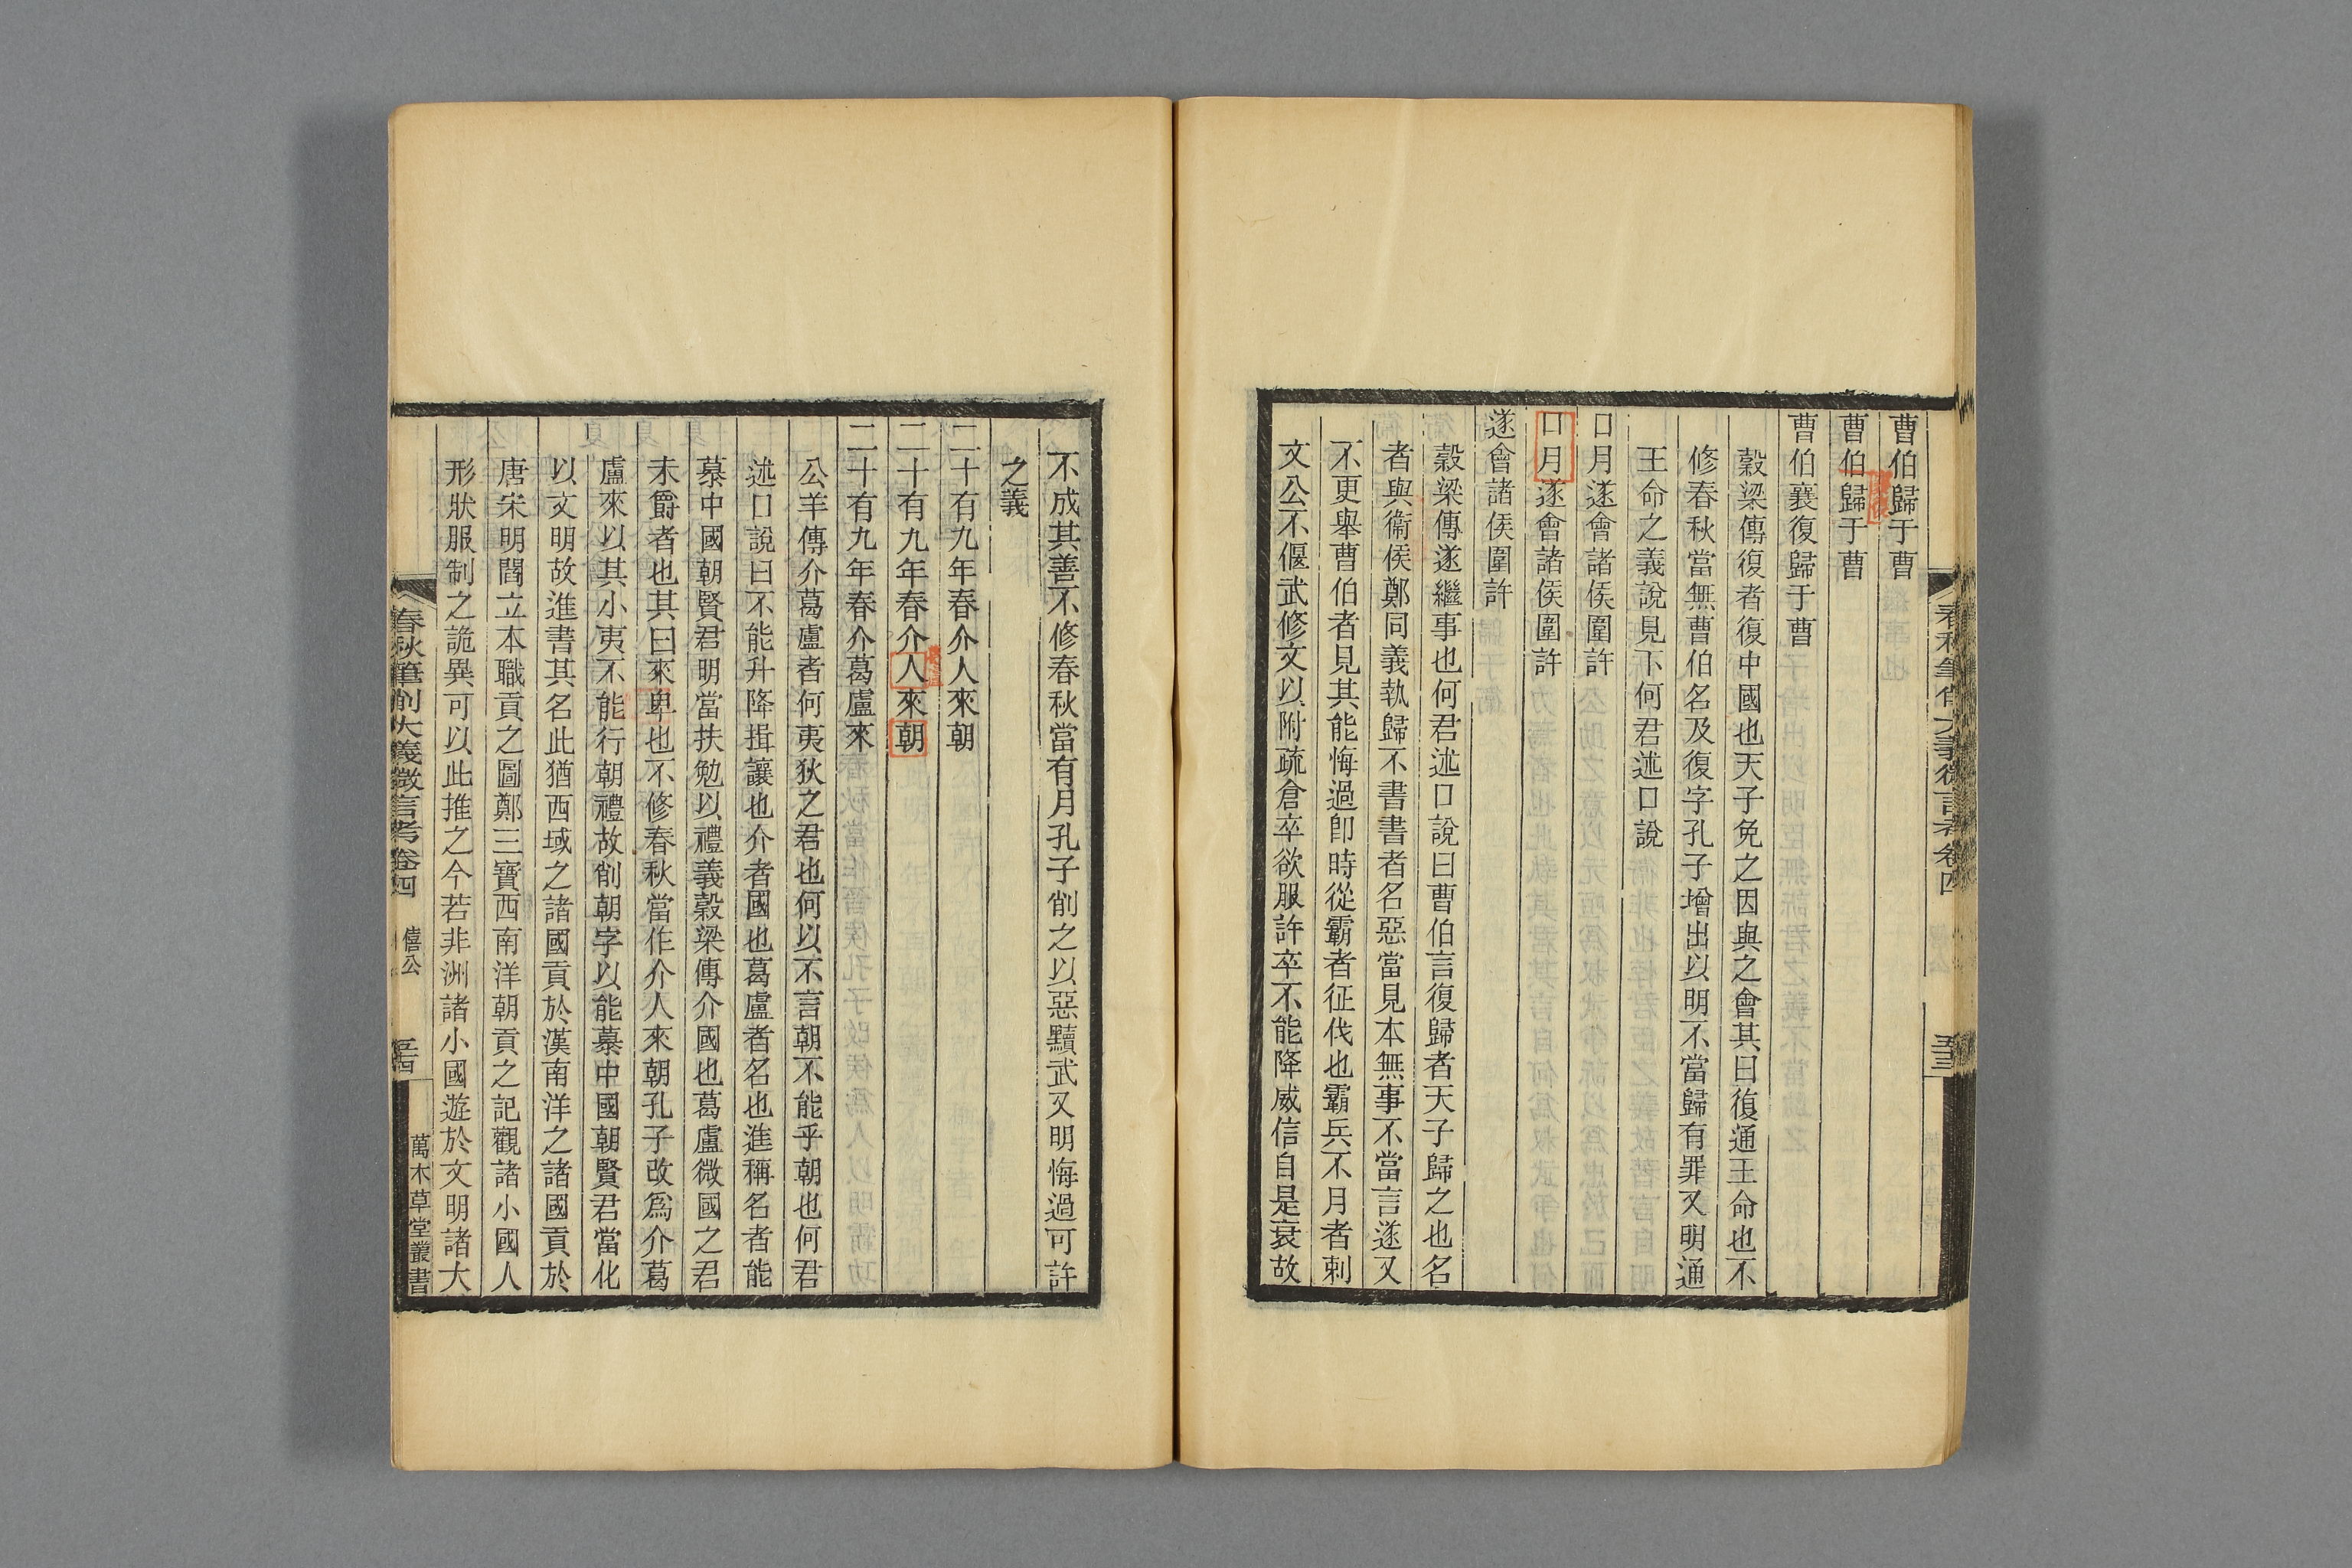 曹伯歸于曹
曹伯歸于曹
曹伯襄復歸于曹
穀梁傳復者復中國也天子免之因與之會其曰復通王命也不
修春秋當無曹伯名及復字孔子增出以明不當歸有罪又明通
王命之義說見下何君述口說
口月遂會諸侯圍許
口月遂會諸侯圍許
遂會諸侯圍許
穀梁傳遂繼事也何君述口說曰曹伯言復歸者天子歸之也名
者與衞侯鄭同義執歸不書書者名惡當見本無事不當言遂又
不更舉曹伯者見其能悔過卽時從霸者征伐也霸兵不月者刺
文公不偃武修文以附疏倉卒欲服許卒不能降威信自是衰故
春秋筆削大義微言考卷四
五十三
不成其善不修春秋當有月孔子削之以惡黷武又明悔過可許
之義
二十有九年春介人來朝
二十有九年春介人來朝
二十有九年春介葛盧來
公羊傳介葛盧者何夷狄之君也何以不言朝不能乎朝也何君
述口說曰不能升降揖讓也介者國也葛盧者名也進稱名者能
慕中國朝賢君明當扶勉以禮義穀梁傳介國也葛盧微國之君
未爵者也其曰來卑也不修春秋當作介人來朝孔子改爲介葛
盧來以其小夷不能行朝禮故削朝字以能慕中國朝賢君當化
以文明故進書其名此猶西域之諸國貢於漢南洋之諸國貢於
唐宋明閻立本職貢之圖鄭三寶西南洋朝貢之記觀諸小國人
形狀服制之詭異可以此推之今若非洲諸小國遊於文明諸大
春秋筆削大義微言考卷四
僖公
五十四
萬木草堂叢書